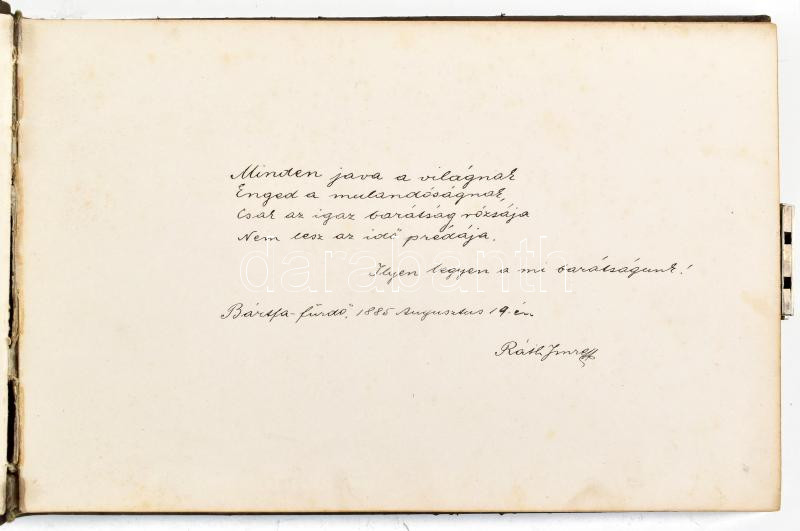 Minden java a világnak
Enged a mulandóságnak,
Csak az igaz barátság rózsája
Nem lesz az idő prédája.
Ilyen legyen a mi barátságunk!
Bártfa-fürdő, 1885 Augusztus 19-én
Ráth Imre
darabanth